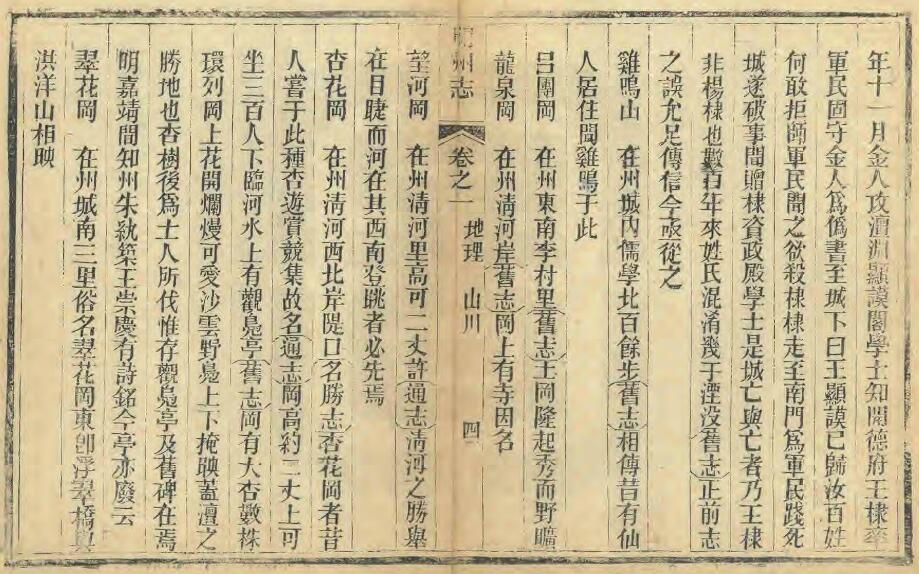 年十一月金人攻澶淵顯謨閣學士知開德府王棣率
軍民固守金人爲僞書至城下曰王顯謨已歸汝百姓
何敢拒師軍民聞之欲殺棣棣走至南門爲軍民踐死
城遂破事聞贈棣資政殿學士是城亡與亡者乃王棣
非楊棣也數百年來姓氏混淆幾于湮没舊志正前志
之誤允足傳信今亟從之
雞鳴山 在州城內儒學北百餘步舊志相傳昔有仙
人居住聞雞鳴于此
呂團岡 在州東南李村里舊志土岡隆起秀而野曠
龍泉岡 在州淸河岸舊志岡上有寺因名
開州志 卷之一 地理 山川 四
望河岡 在州淸河里高可二丈許通志淸河之勝舉
在目睫而河在其西南登眺者必先焉
杏花岡 在州淸河西北岸隄口名勝志杏花岡者昔
人嘗于此種杏遊賞競集故名通志岡高約二丈上可
坐三百人下臨河水上有觀鳧亭舊志岡有大杏數株
環列岡上花開爛熳可愛沙雲野鳧上下掩映蓋澶之
勝地也杏樹後爲士人所伐惟存觀鳧亭及舊碑在焉
明嘉靖間知州朱紈築王崇慶有詩銘今亭亦廢云
翠花岡 在州城南三里俗名翠花岡東卽浮翠橋與
洪洋山相映